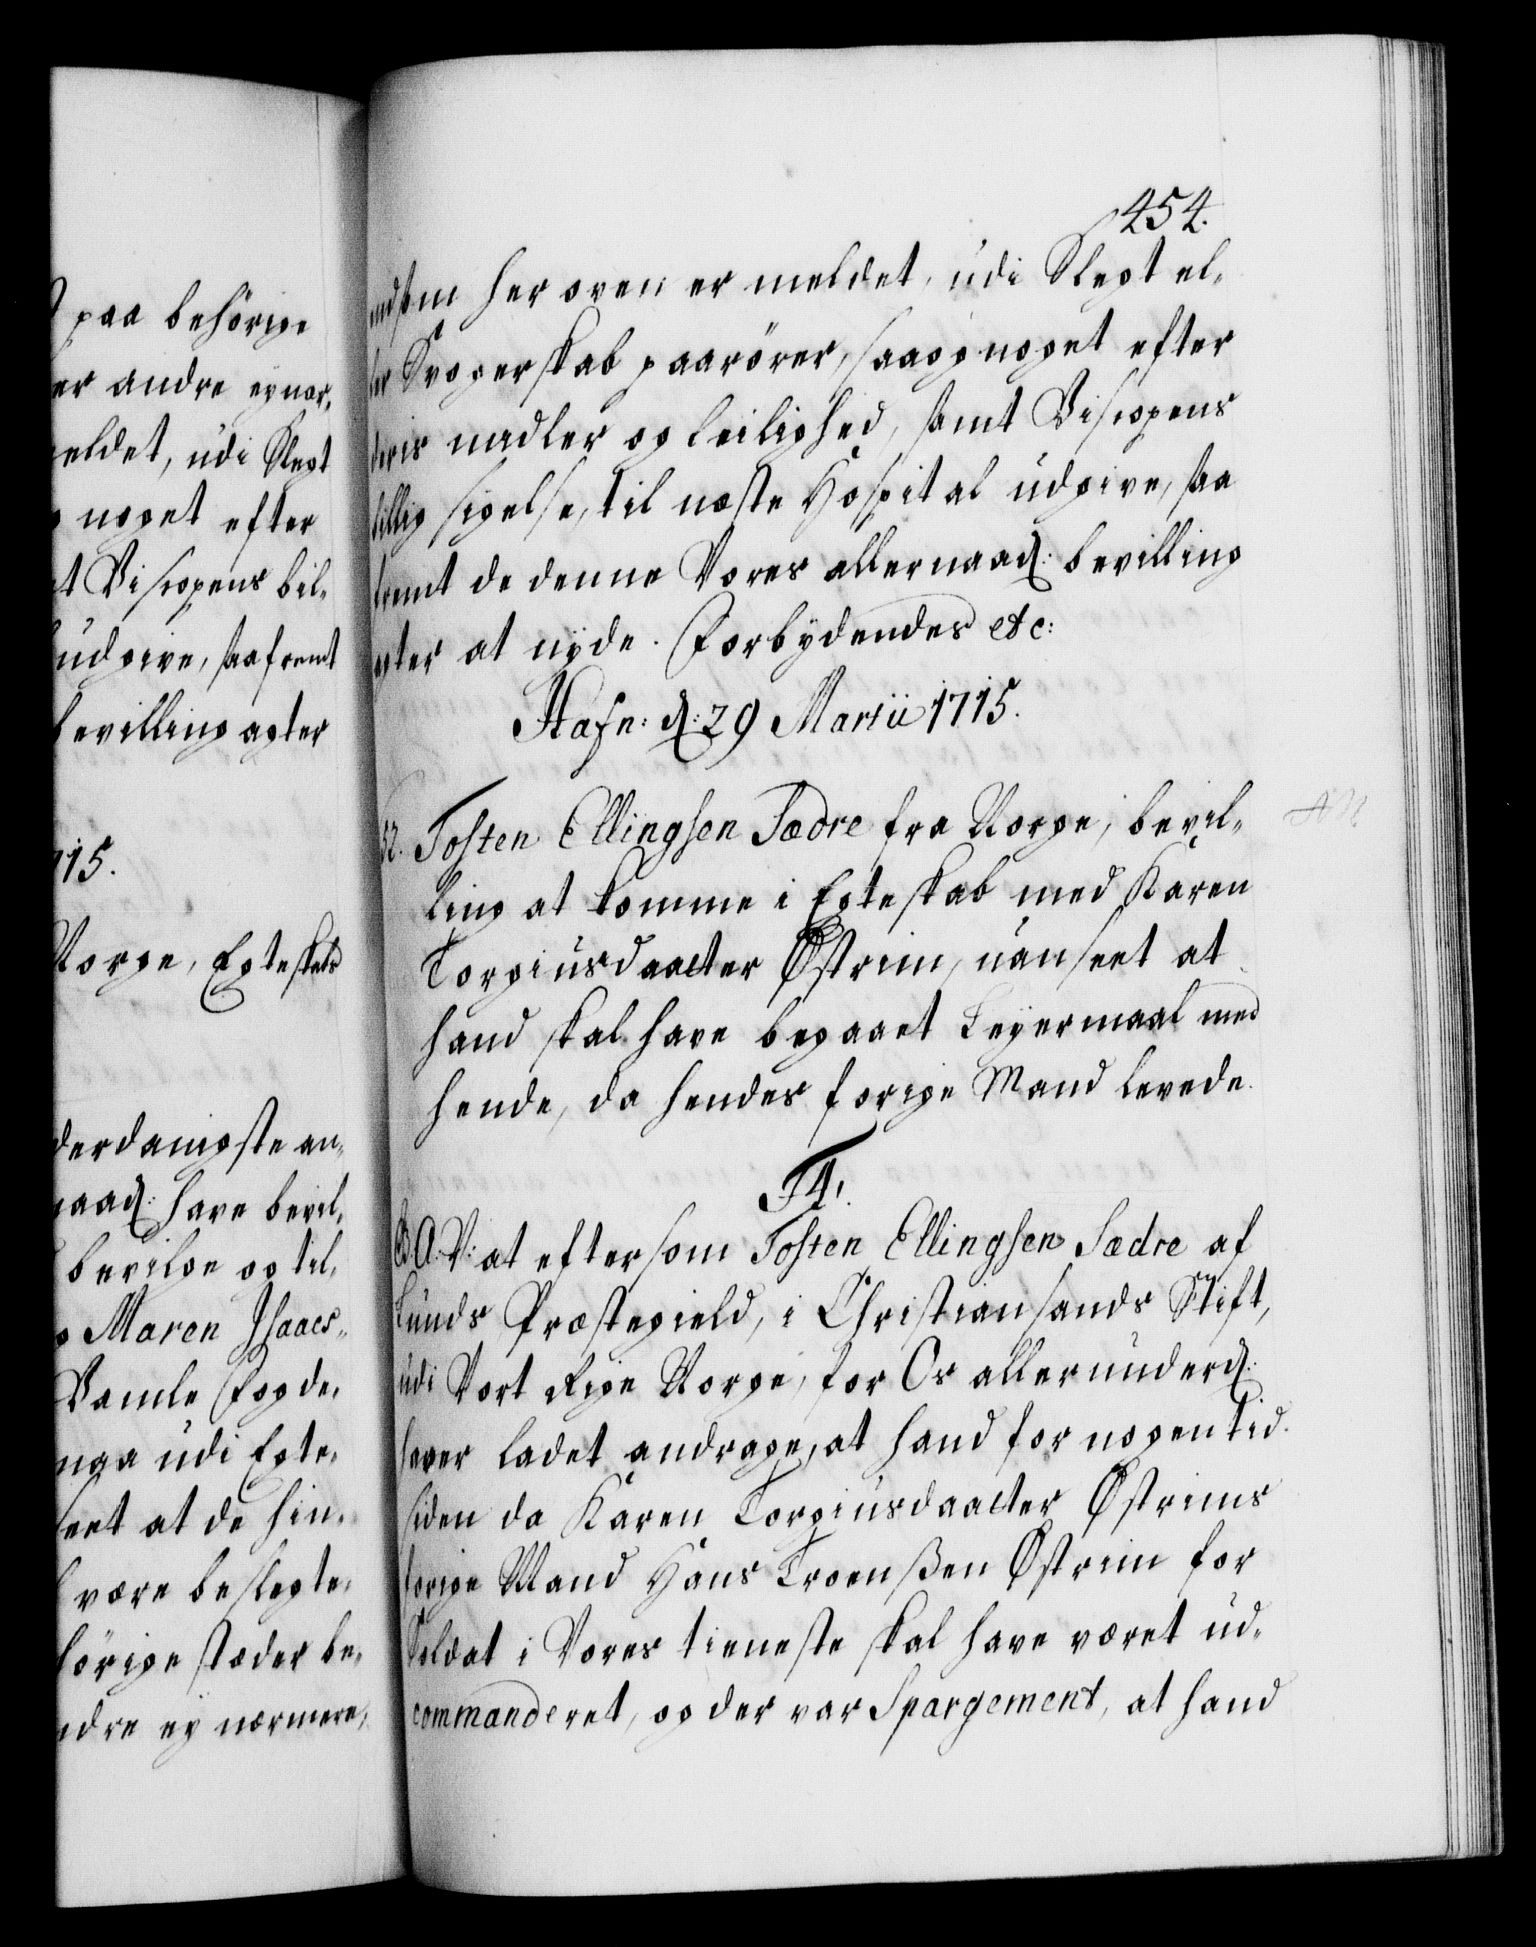 paa behörige
er andre ey nær,
meldet, udi Slegt
noget efter
Viscopens bil,
udgive, saafremt
bevilling agter
715.
Norge, Egteskab
derdanigste an,
naadʒ: have bevil,
bevilge og til,
Maren Jsaacs,,
Bamle Fogde,
maa udi Egte,
seet at de hin,
være beslegte,
hörige stæder be,
andre ey nærmere,
454.
endsom her oven er meldet, udi Slegt el,
ler Svogerskab paarörer, saa og noget efter
deris midler og leilighed, samt Biscopens
billig sigelse, til næste Hospital udgive, saa
fremt de denne Vores allernaadʒ: bevilling
agter at nyde. Forbydendes etc:
Hafn: dʒ: 29 Martii 1715.
52. Tosten Ellingsen Sædre fra Norge, bevil,
ling at komme i Egteskab med Karen
Torgiusdaatter Østrim, uanseet at
hand skal have begaaet Leyermaal med
hende, da hendes forige Mand levede.
F4.
G: A: V: at eftersom Tosten Ellingsen Sædre af
Lunds Præstegield, i Christiansands Stift,
udi Vort Rige Norge, for Os allerunderdʒ:
haver ladet andrage, at hand for nogen tid
siden da Karen Torgiusdaatter Østrims
forige Mand Hans Troenßen Østrim for
Soldat i Vores tieneste skal have været ud,
commanderet, og der var Spargement, at hand